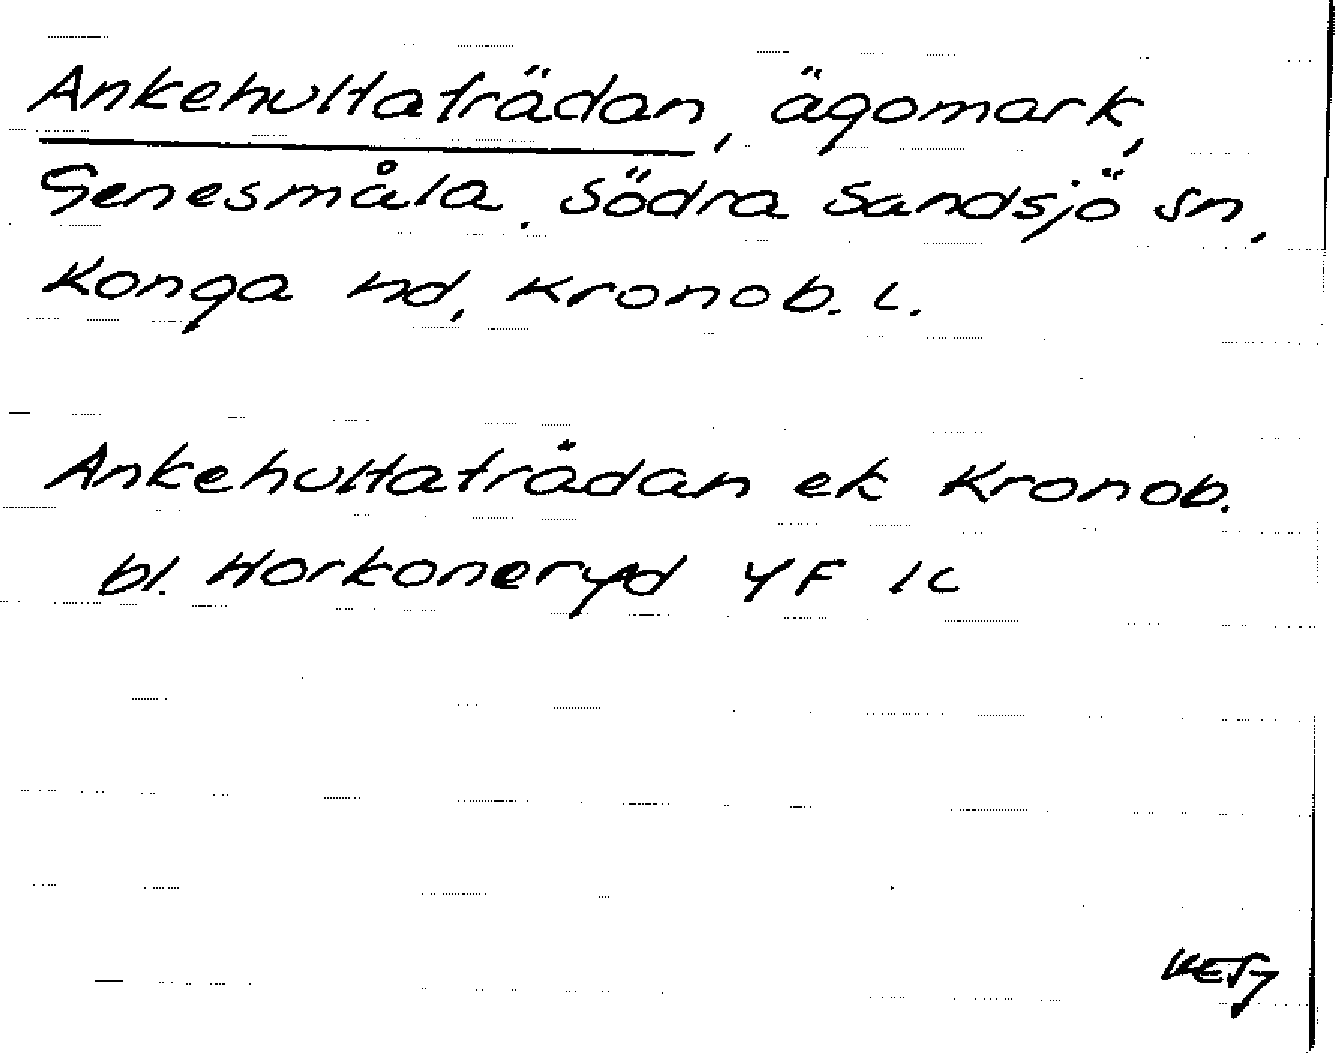 Ankehultaträdan, ägomark,
Genesmåla. Södra Sandsjö sn,
Konga hd, Kronob. L.
Ankehultatrådan ek Kronob.
bl. Horkoneryd YF 1C